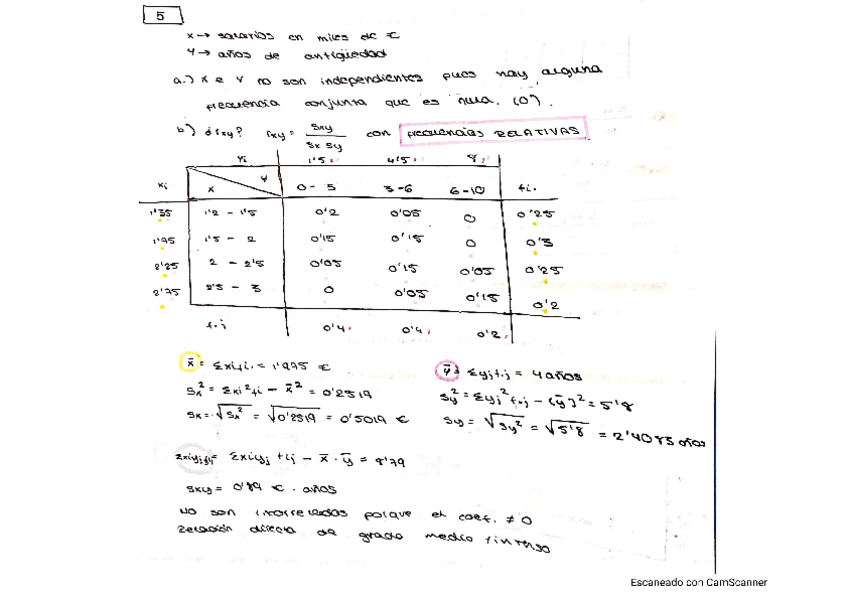 5
x → salarios en miles de €
Y → años de antigüedad
a.) X e Y no son independientes pues hay alguna
frecuencia conjunta que es nula. (0).
b) ¿rxy? rxy = Sxy / Sx Sy con frecuencias RELATIVAS
Yi 1'5 4'5 8
xi X Y 0-3 3-6 6-10 fi.
1'35 1'2 - 1'5 0'2 0'05 0 0'25
1'75 1'5 - 2 0'15 0'15 0 0'3
2'25 2 - 2'5 0'05 0'15 0'05 0'25
2'75 2'5 - 3 0 0'05 0'15 0'2
f.j 0'4 0'4 0'2
x̄ = Σxifi. = 1'975 €
Sx² = Σxi²fi - x̄² = 0'2519
Sx = √Sx² = √0'2519 = 0'5019 €
ȳ = Σyjf.j = 4 años
Sy² = Σyj² f.j - (ȳ)² = 5'8
Sy = √Sy² = √5'8 = 2'4083 años
Σxiyjfij = Σxiyj fij - x̄ · ȳ = 8'79
Sxy = 0'89 € · años
No son incorreladas porque el coef. ≠ 0
Relación directa de grado medio
Escaneado con CamScanner